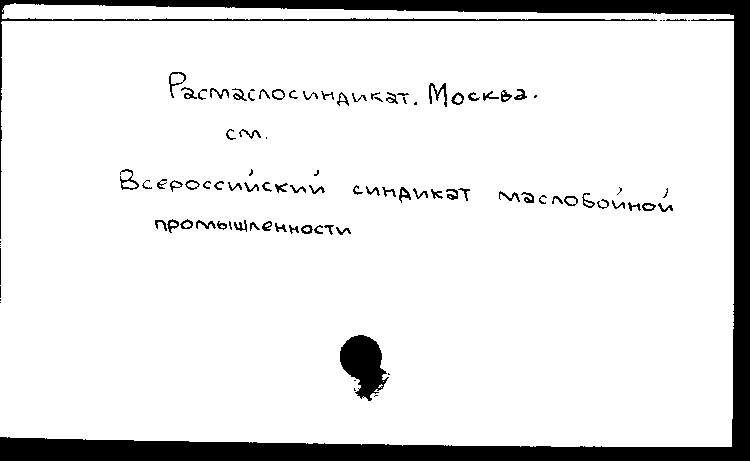 Расмаслосиндикат. Москва.
см.
Всероссийский синдикат маслобойной
промышленности